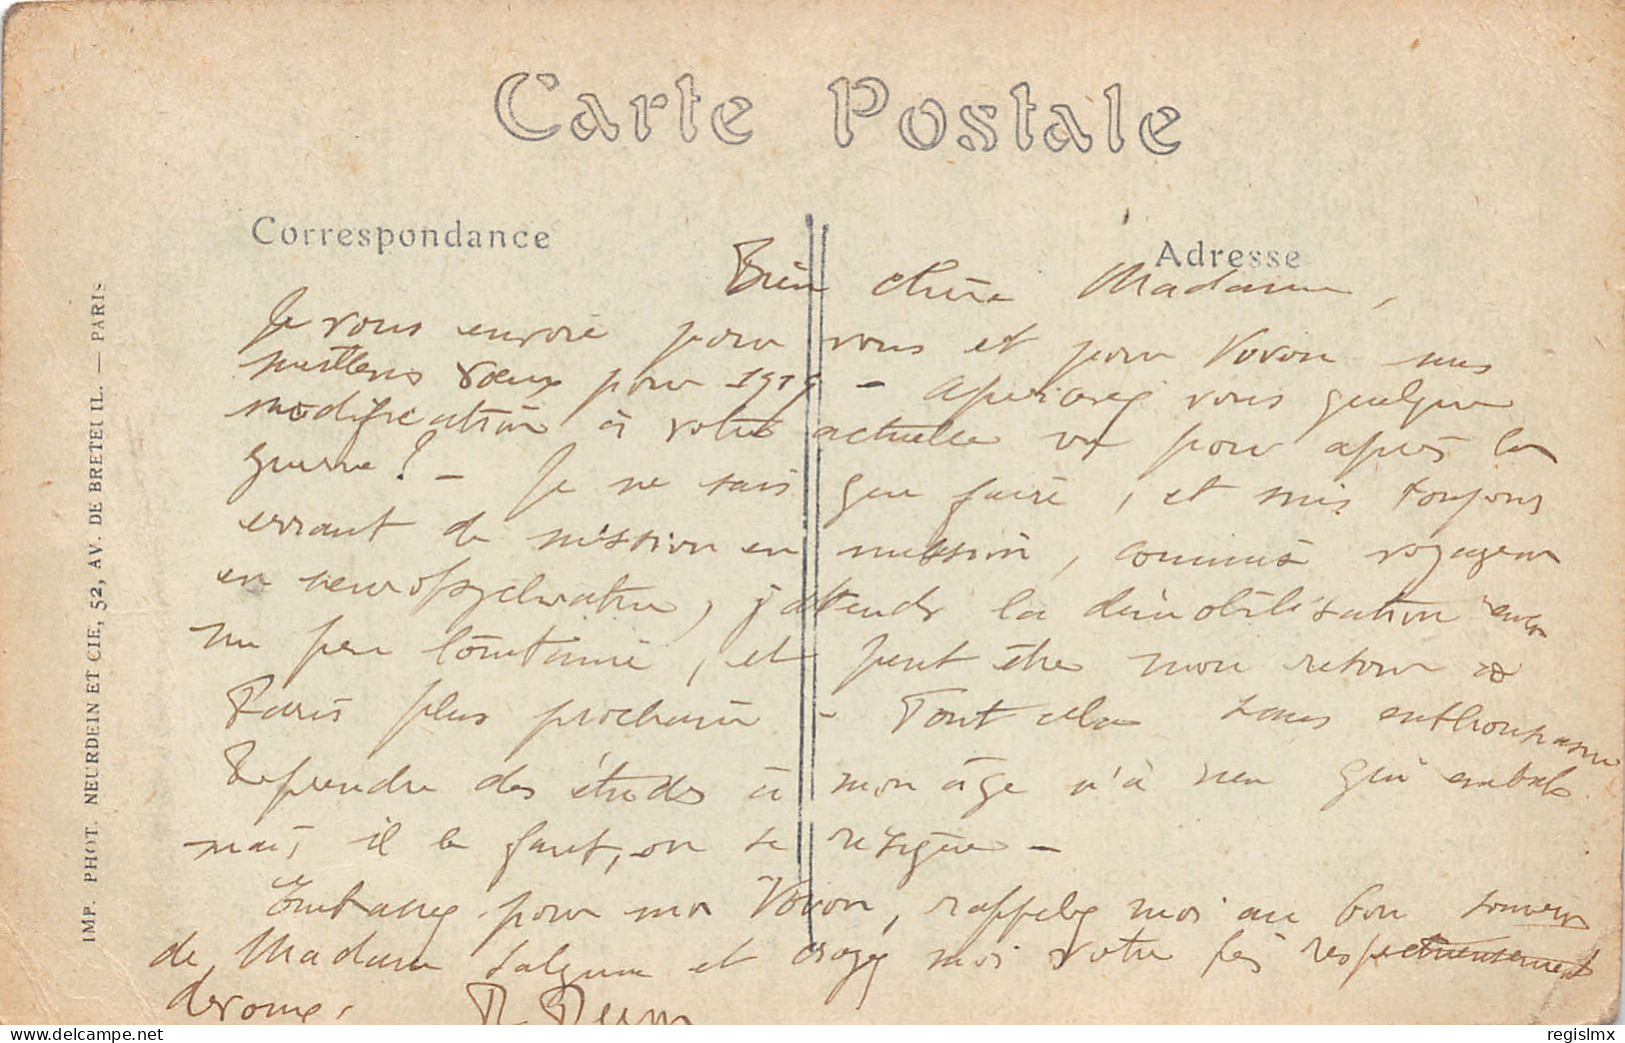 Carte Postale
Correspondance
Adresse
Bien chère Madame,
Je vous envoie pour vous et pour Vovon mes
meilleurs vœux pour 1919 - apercevez vous quelque
modification à votre actuelle vie pour après la
guerre ? - Je ne sais que faire, et suis toujours
errant de mission en mission, comme voyageur
en neuropsychiatrie, j'attends la démobilisation encore
un peu lointaine, et peut être mon retour à
Paris plus prochain - Tout cela sans enthousiasme
Reprendre des études à mon âge n'a rien qui emballe
mais il le faut, on se résigne -
Embrassez pour moi Vovon, rappelez moi au bon souvenir
de Madame et croyez moi votre très respectueusement
dévoué.
IMP. PHOT. NEURDEIN ET CIE, 52, AV. DE BRETEUIL. — PARIS
regislmx